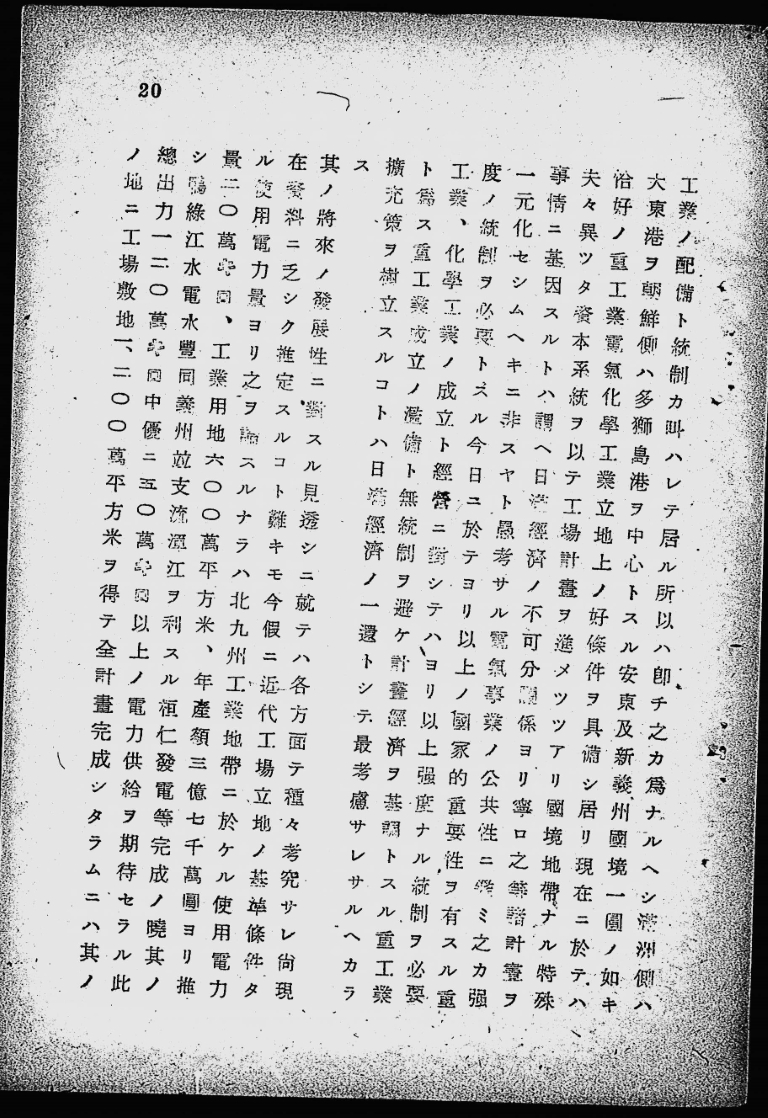 20
工業ノ配備ト統制カ叫ハレテ居ル所以ハ卽チ之カ爲ナルヘシ滿洲側ハ
大東港ヲ朝鮮側ハ多獅島港ヲ中心トスル安東及新義州國境一圓ノ如キ
恰好ノ重工業電氣化學工業立地上ノ好條件ヲ具備シ居リ現在ニ於テハ
夫々異ツタ資本系統ヲ以テ工場計畫ヲ進メツツアリ國境地帶ナル特殊
事情ニ基因スルトハ謂ヘ日滿經濟ノ不可分關係ヨリ寧ロ之等諸計畫ヲ
一元化セシムヘキニ非スヤト愚考サル電氣事業ノ公共性ニ鑑ミ之カ强
度ノ統制ヲ必要トスル今日ニ於テヨリ以上ノ國家的重要性ヲ有スル重
工業、化學工業ノ成立ト經營ニ對シテハヨリ以上强度ナル統制ヲ必要
ト爲ス重工業成立ノ濫備ト無統制ヲ避ケ計畫經濟ヲ基調トスル重工業
擴充策ヲ樹立スルコトハ日滿經濟ノ一還トシテ最考慮サレサルヘカラ
ス
其ノ將來ノ發展性ニ對スル見透シニ就テハ各方面テ種々考究サレ尙現
在資料ニ乏シク推定スルコト難キモ今假ニ近代工場立地ノ基準條件タ
ル使用電力量ヨリ之ヲ論スルナラハ北九州工業地帶ニ於ケル使用電力
量二〇萬キロ、工業用地六〇〇萬平方米、年產額三億七千萬圓ヨリ推
シ鴨綠江水電水豐同義州竝支流渾江ヲ利スル桓仁發電等完成ノ曉其ノ
總出力一二〇萬キロ中優ニ五〇萬キロ以上ノ電力供給ヲ期待セラル此
ノ地ニ工場敷地一、二〇〇萬平方米ヲ得テ全計畫完成シタラムニハ其ノ